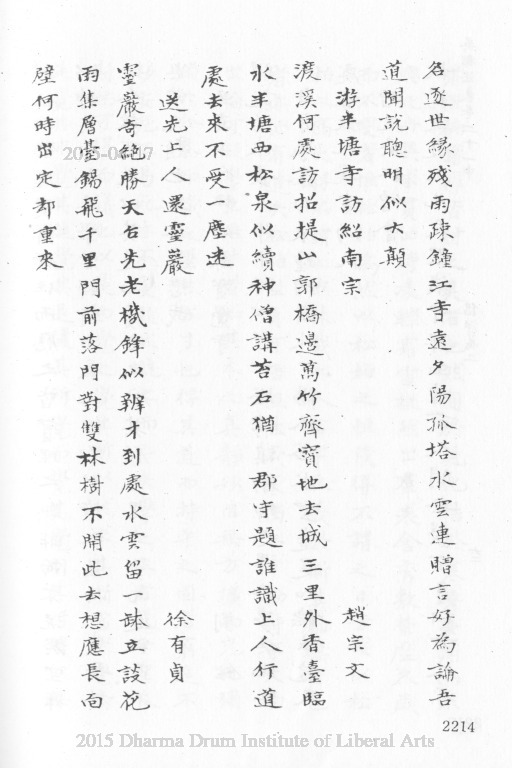 名逐世緣殘雨疎鐘江寺遠夕陽孤塔水雲連贈言好為論吾
道聞說聰明似大顛
游半塘寺訪紹南宗 趙宗文
渡溪何處訪招提山郭橋邊萬竹齊寶地去城三里外香臺臨
水半塘西松泉似續神僧講苔石猶 郡守題誰識上人行道
處去來不受一塵迷
送先上人還靈巖 徐有貞
靈巖奇絕勝天台先老機鋒似辨才到處水雲留一缽立談花
雨集層臺錫飛千里門前落門對雙林樹不開此去想應長面
壁何時出定却重來
2214
2015 Dharma Drum Institute of Liberal Arts